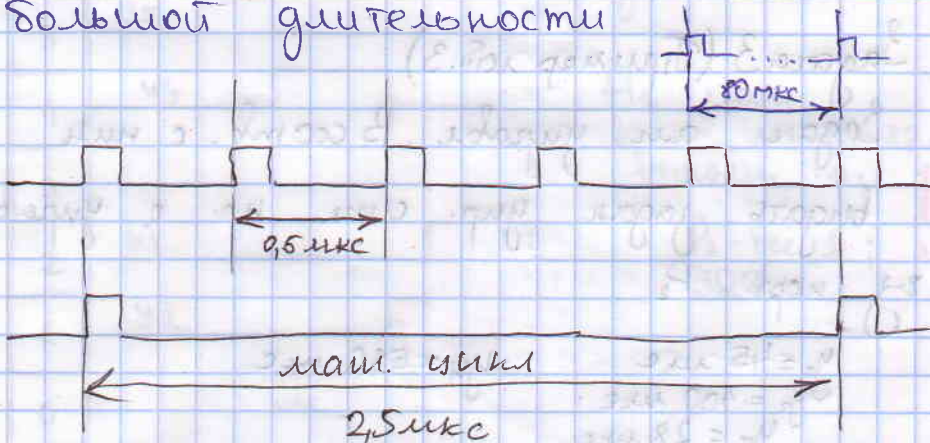 большой длительности
80 мкс
0,5 мкс
маш. цикл
2,5 мкс